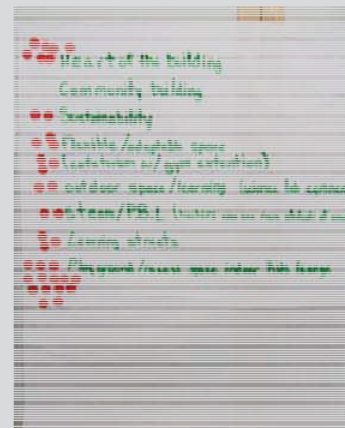 Heart of the building
Community building
Sustainability
Flexible/adaptable space
(cafeteria w/ gym extention)
outdoor space/learning
Steam/PBL
Learning streets
Playground/recess space